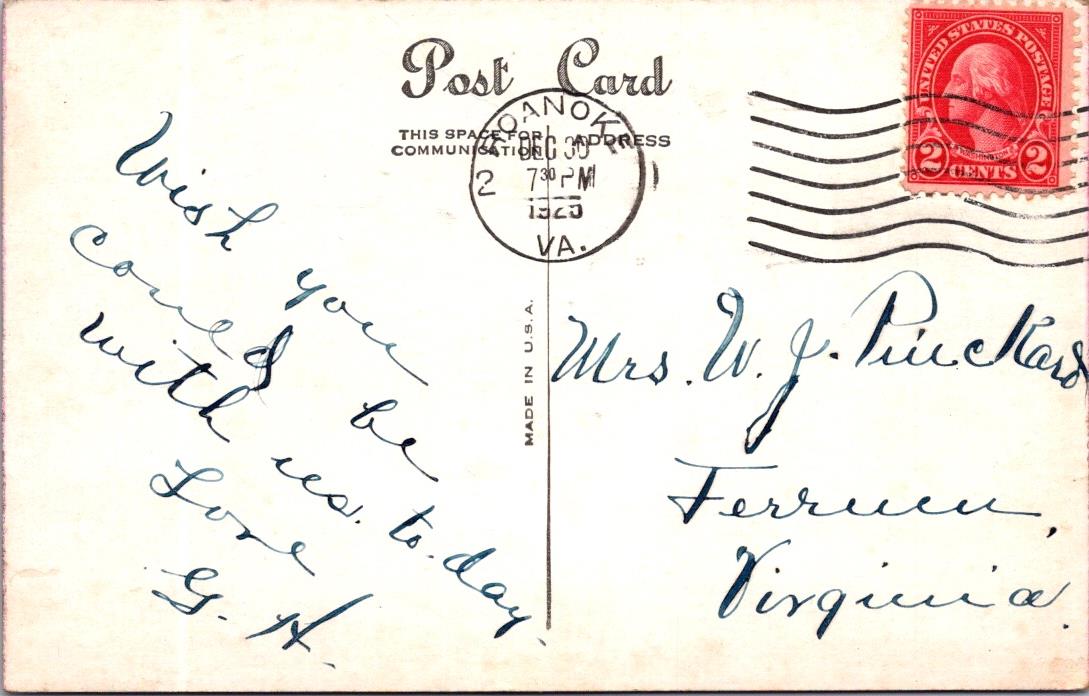 Post Card
THIS SPACE FOR
COMMUNICATION
ADDRESS
ROANOKE
DEC 30
7 30 PM
1925
VA.
2
1
UNITED STATES POSTAGE
WASHINGTON
2 CENTS 2
MADE IN U.S.A.
Wish you
could be
with us to-day.
Love
G. H.
Mrs. W. J. Pinckard
Ferrum,
Virginia.